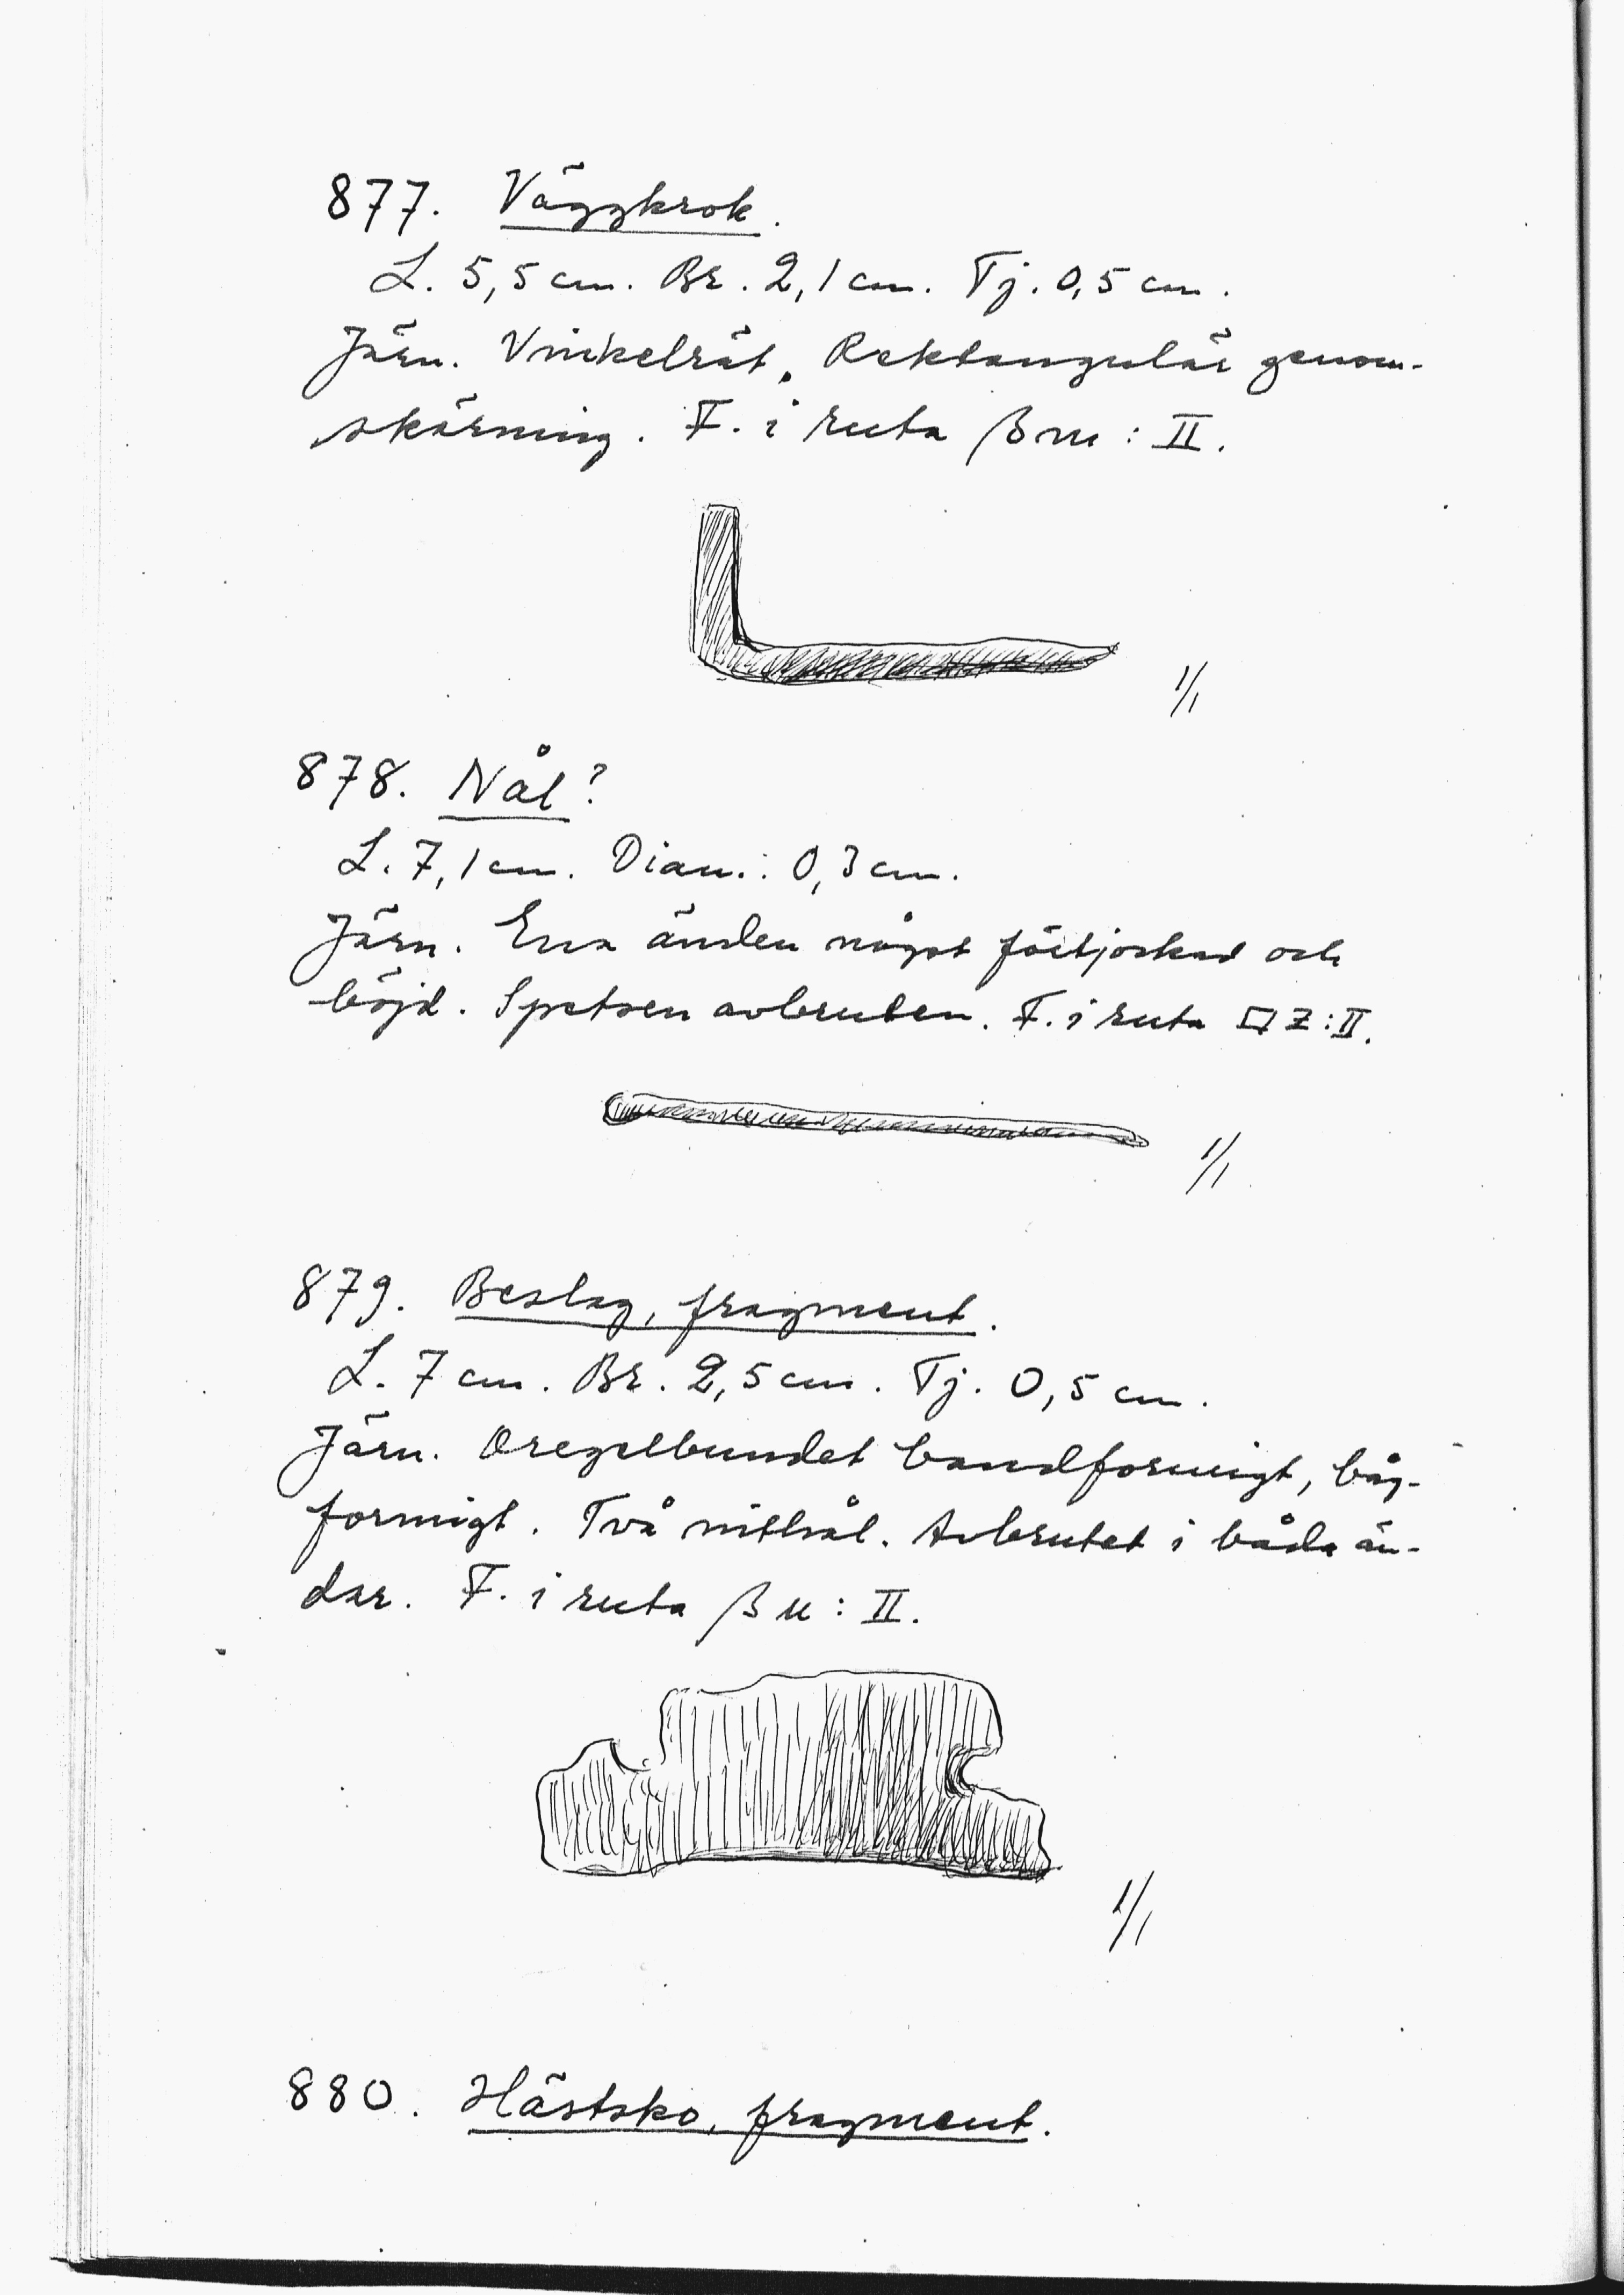 877. Väggkrok.
L. 5,5 cm. Br. 2,1 cm. Tj. 0,5 cm.
Järn. Vinkelrät. Rektangulär genom-
skärning. F. i ruta ßm : II.
1/1
878. Nål?
L. 7,1 cm. Diam.: 0,3 cm.
Järn. Ena änden något förtjockad och
böjd. Spetsen avbruten. F. i ruta Z : II.
1/1
879. Beslag, fragment.
L. 7 cm. Br. 2,5 cm. Tj. 0,5 cm.
Järn. Oregelbundet bandformigt, båg-
formigt. Två nithål. Avbrutet i båda än-
dar. F. i ruta ß : II.
1/1
880. Hästsko, fragment.